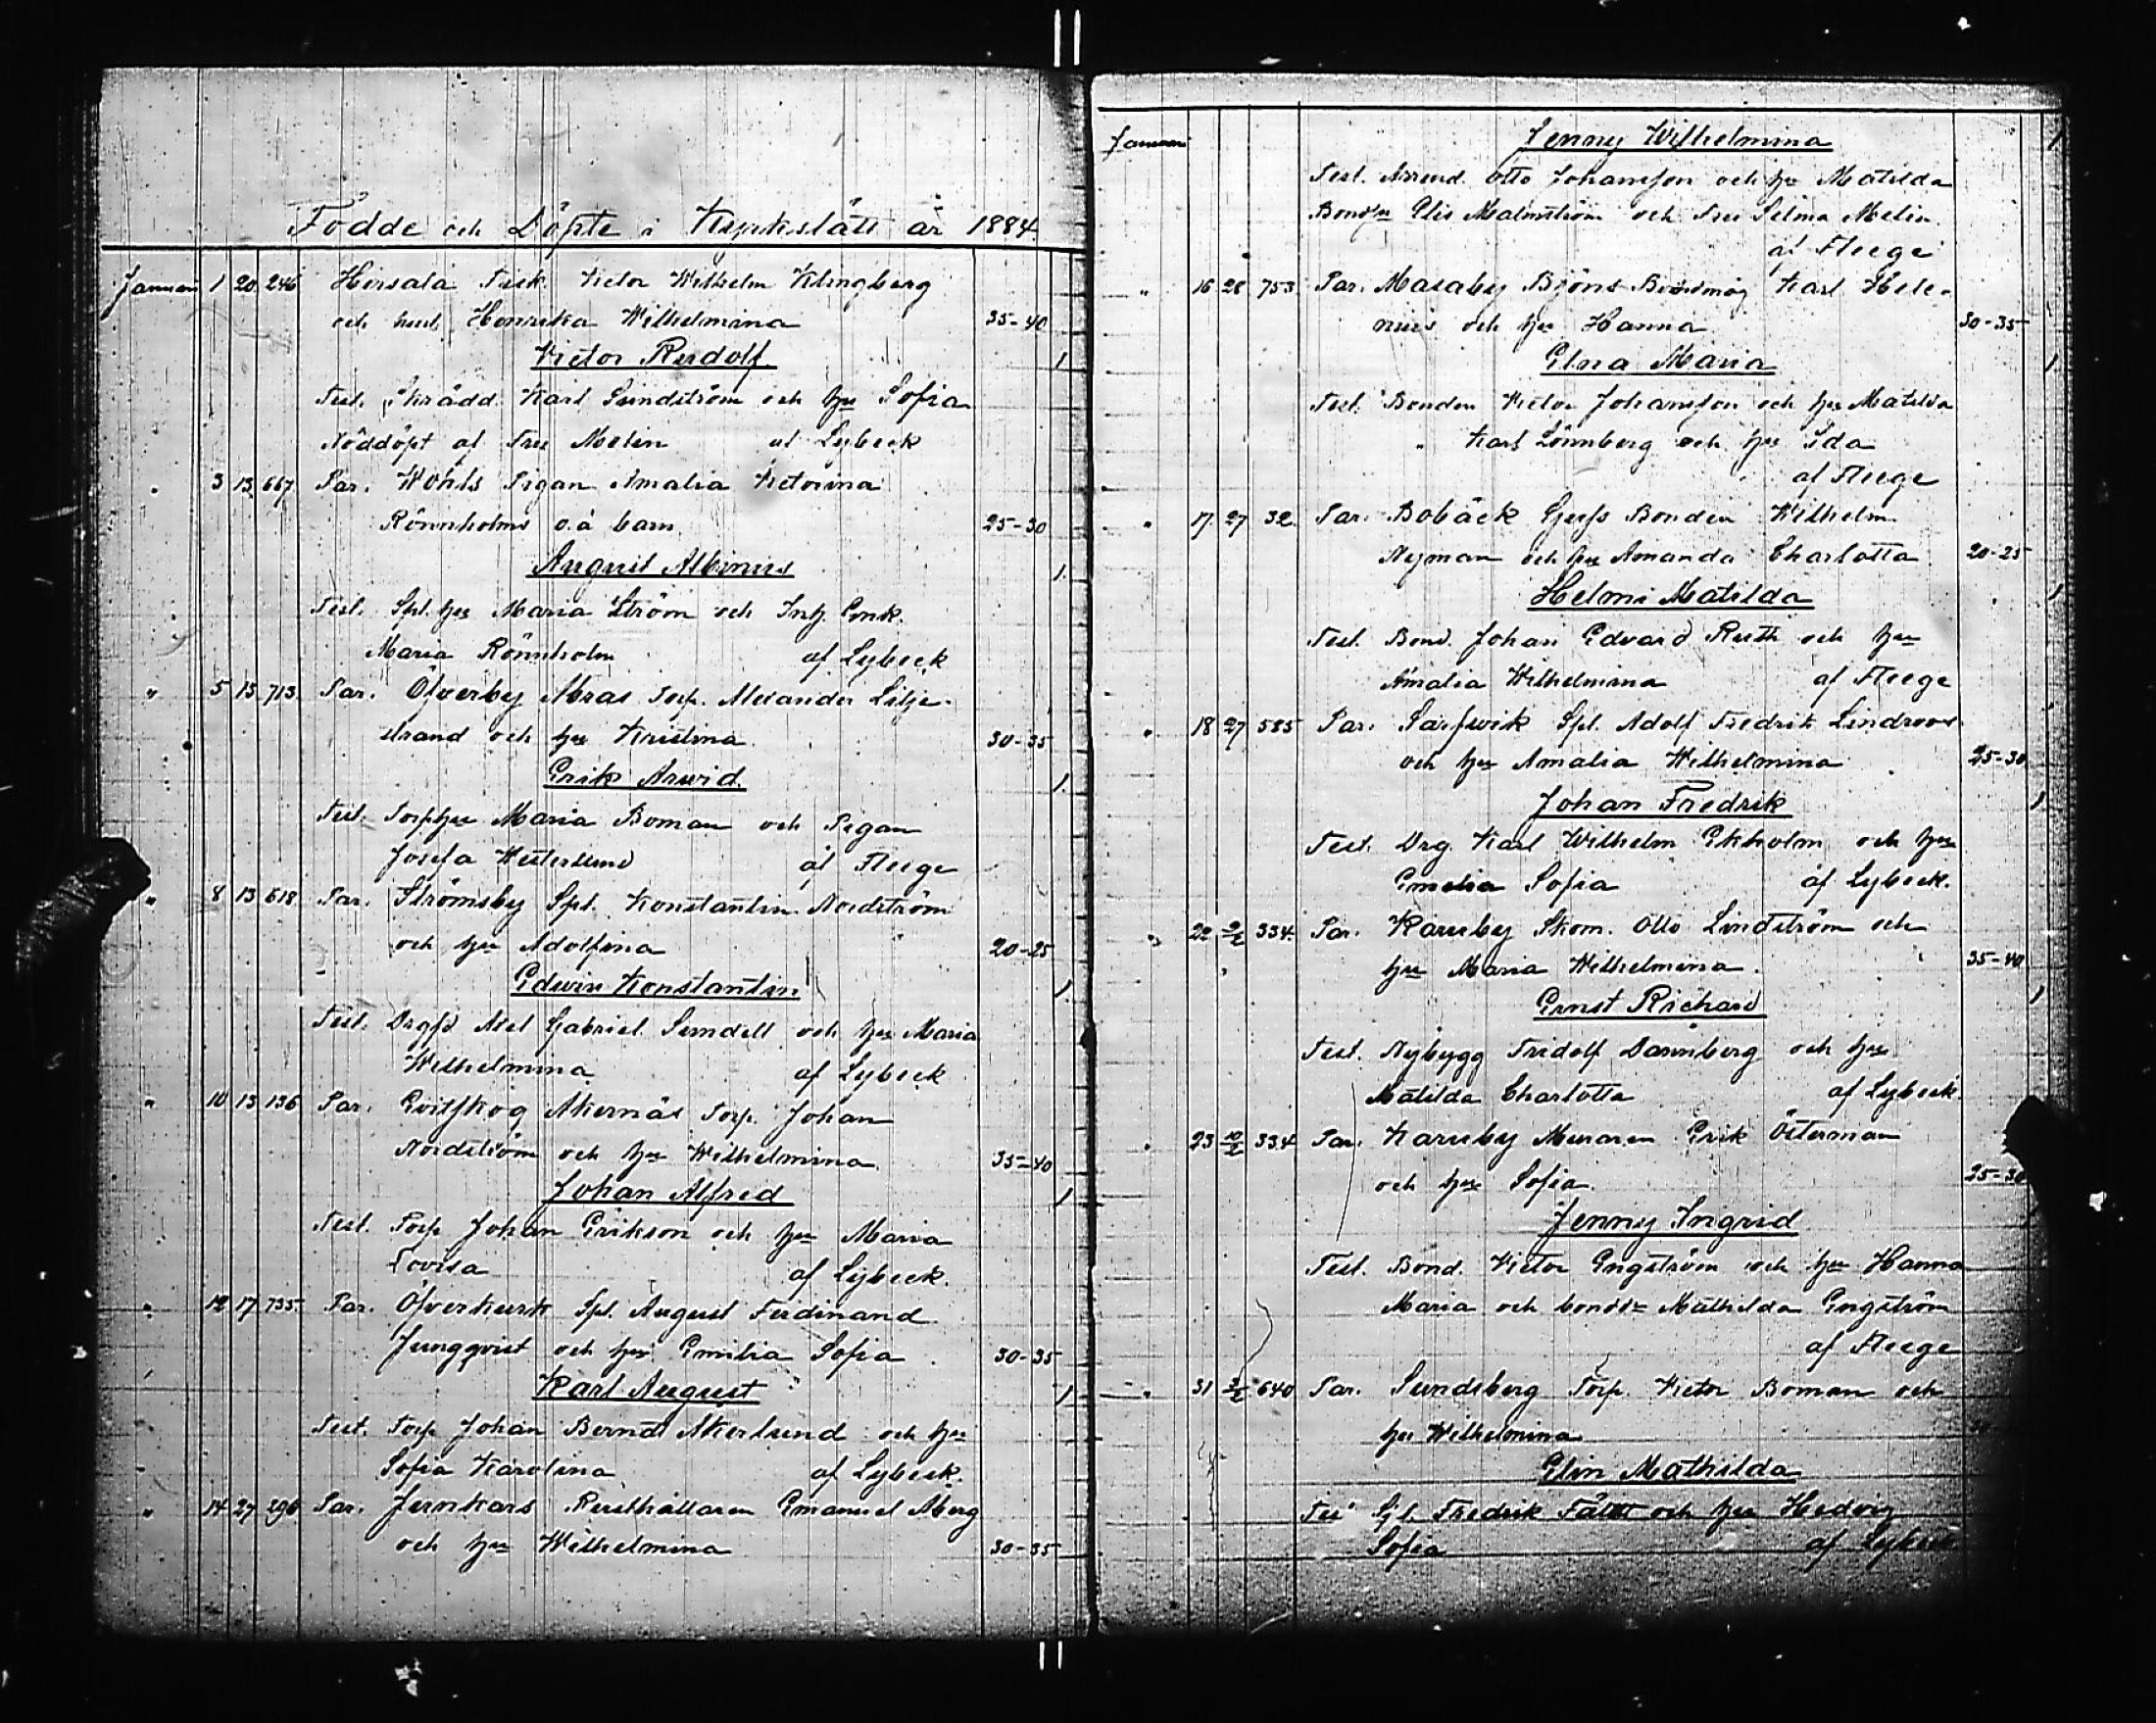 Födde och Döpte i Kyrkslätt år 1884.
Januari 1 20 246 Hirsala Fisk. Victor Wilhelm Klingberg
och hust. Henrika Wilhelmina 35-40
Victor Rudolf 1
Test. Skrädd. Karl Sundström och hu Sofia
Nöddöpt af Fru Melin af Lybeck
" 3 13 667 Par. Wohls Pigan Amalia Victorina
Rönnholms o.ä barn 25-30
August Albinus 1.
Test. Spt. hu Maria Ström och Inh. Enk.
Maria Rönnholm af Lybeck
" 5 13 713. Par. Öfverby Mras Torp. Alexander Lilje-
strand och hu Kristina 30-35
Erik Arwid. 1.
Test. Torphu Maria Boman och Pigan
Josefa Westerlund af Fleege
" 8 13 618 Par. Strömsby Spt. Konstantin Nordström
och hu Adolfina 20-25
Edwin Konstantin 1.
Test. Drgfd Axel Gabriel Sundell och hu Maria
Wilhelmina af Lybeck
" 10 13 136 Par. Evitskog Åkernäs Torp. Johan
Nordström och hu Wilhelmina 35-40
Johan Alfred 1
Test. Torp Johan Erikson och hu Maria
Lovisa af Lybeck.
" 12 17 735. Par. Öfverkurk Spt. August Ferdinand
Jungqvist och hu Emilia Sofia 30-35
Karl August 1
Test. Torp Johan Berndt Åkerlund och hu
Sofia Karolina af Lybeck.
" 14 27 296 Par. Jernkars Rusthållaren Emanuel Åberg
och hu Wilhelmina 30-35
Januari Jenny Wilhelmina 1
Test. Arrend. Otto Johansson och hu Matilda
Bondn Elis Malmström och Fru Selma Melin
af Fleege
" 16 28 753 Par. Masaby Bjöns Karl Hele-
nius och hu Hanna 30-35
Elna Maria 1
Test. Bonden Victor Johansson och hu Matilda
" Karl Lönnberg och hu Ida
af Fleege
" 17. 27 32. Par. Bobäck Bonden Wilhelm
Nyman och hu Amanda Charlotta 20-25
Helmi Matilda 1
Test. Bond. Johan Edvard Ruth och hu
Amalia Wilhelmina af Fleege
" 18 27 585 Par. Sarfvik Spt. Adolf Fredrik Lindroos
och hu Amalia Wilhelmina 25-30
Johan Fredrik 1
Test. Drg. Karl Wilhelm Ekholm och hu
Emelia Sofia af Lybeck.
" 22 2/2 334. Par. Karuby Skom. Otto Lindström och
hu Maria Wilhelmina. 35-40
Ernst Richard 1
Test. Nybygg Fridolf Dannberg och hu
Matilda Charlotta af Lybeck.
" 23 10/2 334 Par. Karuby Muraren Erik Österman
och hu Sofia. 25-30
Jenny Ingrid
Test. Bond. Victor Engström och hu Hanna
Maria och bondd Mathilda Engström
af Fleege
" 31 2/2 640 Par. Sundsberg Torp. Victor Boman och
hu Wilhelmina
Elin Mathilda
Tes Fredrik Fält och hu Hedvig
Sofia af Lybeck